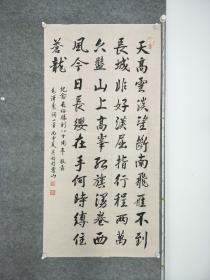 天高雲淡望斷南飛雁不到
長城非好漢屈指行程二萬
六盤山上高峰紅旗漫卷西
風今日長纓在手何時縛住
蒼龍
紀念長征勝利八十周年敬書
毛澤東詞一首丙申夏